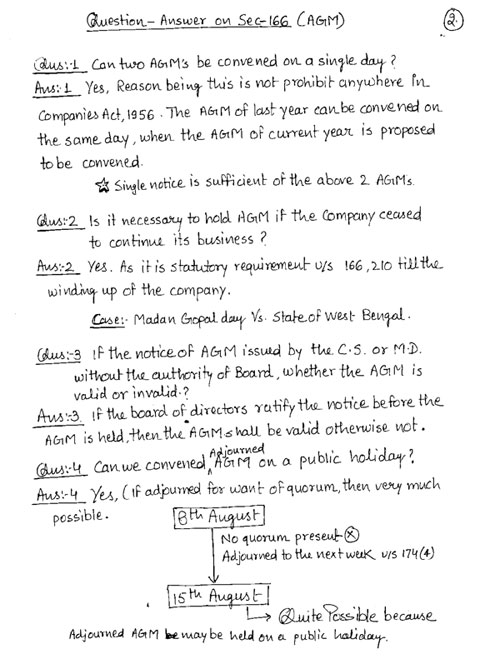 Question-Answer on Sec-166 (AGM)
2.
Qus:1 Can two AGM's be convened on a single day?
Ans:1 Yes, Reason being this is not prohibit anywhere in
Companies Act, 1956. The AGM of last year can be convened on
the same day, when the AGM of current year is proposed
to be convened.
☆ Single notice is sufficient of the above 2 AGMs.
Qus:-2 Is it necessary to hold AGM if the Company ceased
to continue its business?
Ans:-2 Yes. As it is statutory requirement u/s 166, 210 till the
winding up of the company.
Case:- Madan Gopal day Vs. State of West Bengal.
Qus:-3 If the notice of AGM issued by the C.S. or M.D.
without the authority of Board, whether the AGM is
valid or invalid.?
Ans:-3. If the board of directors ratify the notice before the
AGM is held, then the AGM shall be valid otherwise not.
Qus:-4 Can we convened Adjourned AGM on a public holiday?
Ans:-4 Yes, (If adjourned for want of quorum, then very much
possible.
8th August
No quorum present ⓧ
Adjourned to the next week u/s 174(4)
15th August
Quite Possible because
Adjourned AGM be may be held on a public holiday.